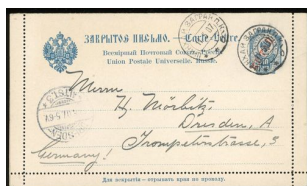 ЗАКРЫТОЕ ПИСЬМО. Carte-lettre.
Всемірный Почтовый Союзъ. Россія.
Union Postale Universelle. Russie.
Herrn
H. Nörbitz
Dresden, A
Trompeterstrasse, 3
Germany!
Для вскрытія – оторвать края по проколу.